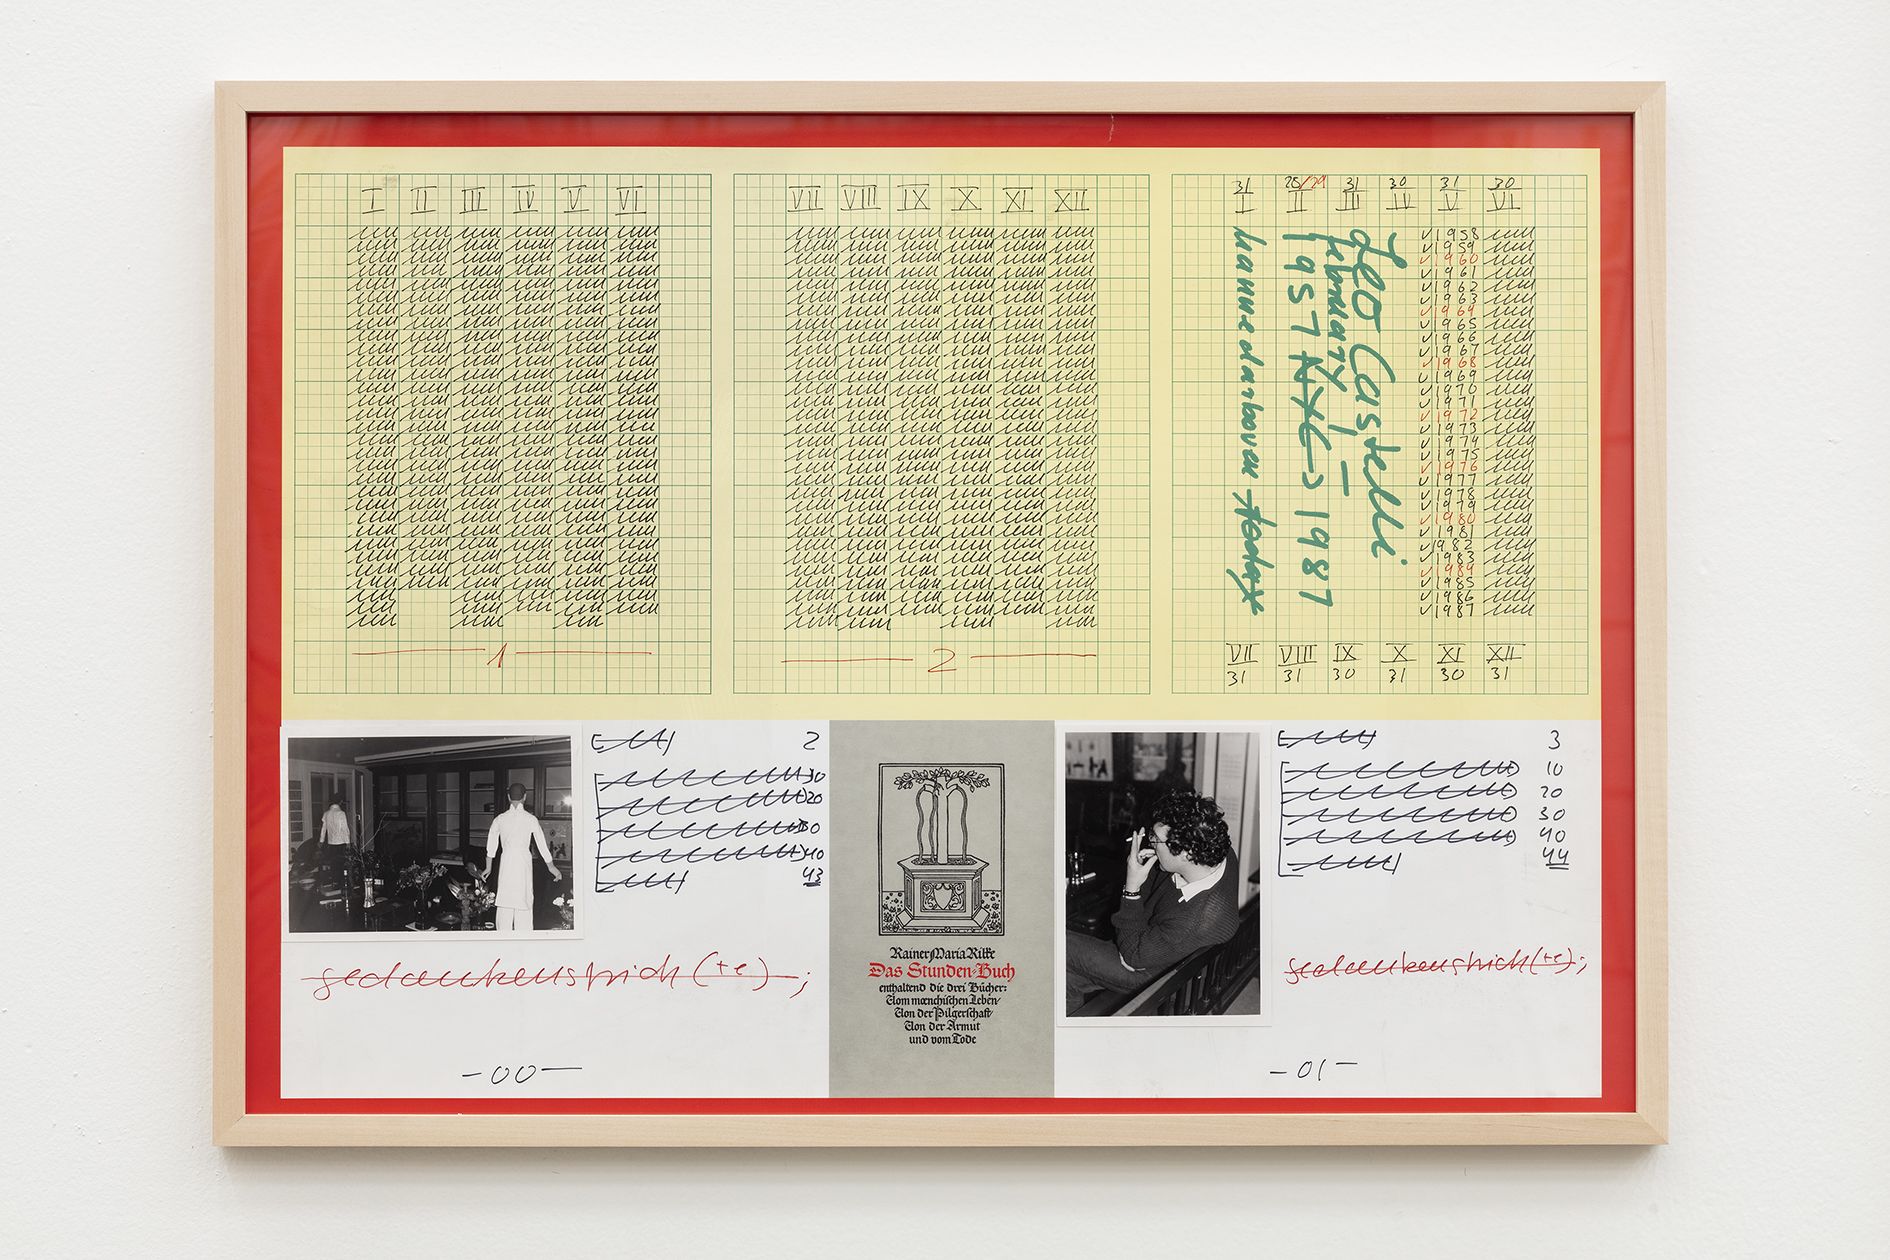 I II III IV V VI
1
VII VIII IX X XI XII
2
31 28/29 31 30 31 30
I II III IV V VI
Leo Castelli
february 1 –
1957 NYC → 1987
hanne darboven today
1958
1959
1960
1961
1962
1963
1964
1965
1966
1967
1968
1969
1970
1971
1972
1973
1974
1975
1976
1977
1978
1979
1980
1981
1982
1983
1984
1985
1986
1987
VII VIII IX X XI XII
31 31 30 31 30 31
2
10
20
30
40
43
gedankenstrich(+e);
–00–
Rainer Maria Rilke
Das Stunden-Buch
enthaltend die drei Bücher:
Vom mœnchischen Leben/
Von der Pilgerschaft/
Von der Armut
und vom Tode
3
10
20
30
40
44
gedankenstrich(+e);
–01–